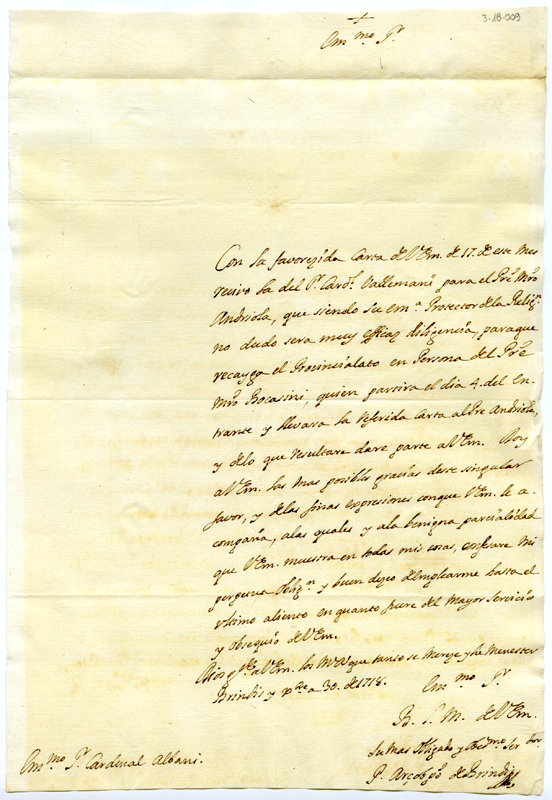 3-18-009
+
Em.mo S.r
Con la favorezida Carta de V. Em. de 17. de este Mes
recivo la del S.r Card.l Vallemani para el P.re Mro
Andriola, que siendo su em.a Protector de la Relig.n
no dudo sera muy efficaz diligencia, paraque
recayga el Provincialato en Persona del P.re
Mro Bocasini, quien partira el dia 4. del En-
trante y llevara la referida Carta al Pre Andriola,
y de lo que resultare dare parte a V. Em. Doy
a V. Em. las mas posibles gracias deste singular
favor, y de las finas expresiones conque V. Em. le a-
compaña, a las quales y a la benigna parcialidad
que V. Em. muestra en todas mis cosas, confesare mi
perpetua Oblig.n y buen deseo de emplearme hasta el
ultimo aliento en quanto fuere del Mayor Servicio
y obsequio de V. Em.
Dios g.de a V. Em. los M. a.s que tanto se mereze y he Menester
Brindis y a 30. de 1718.
Em.mo S.r
B. L. M. de V. Em.
Su mas Obligado y Obed.mo Ser.dor
P. Arçobpo de Brindis
Em.mo S.r Cardenal Albani.